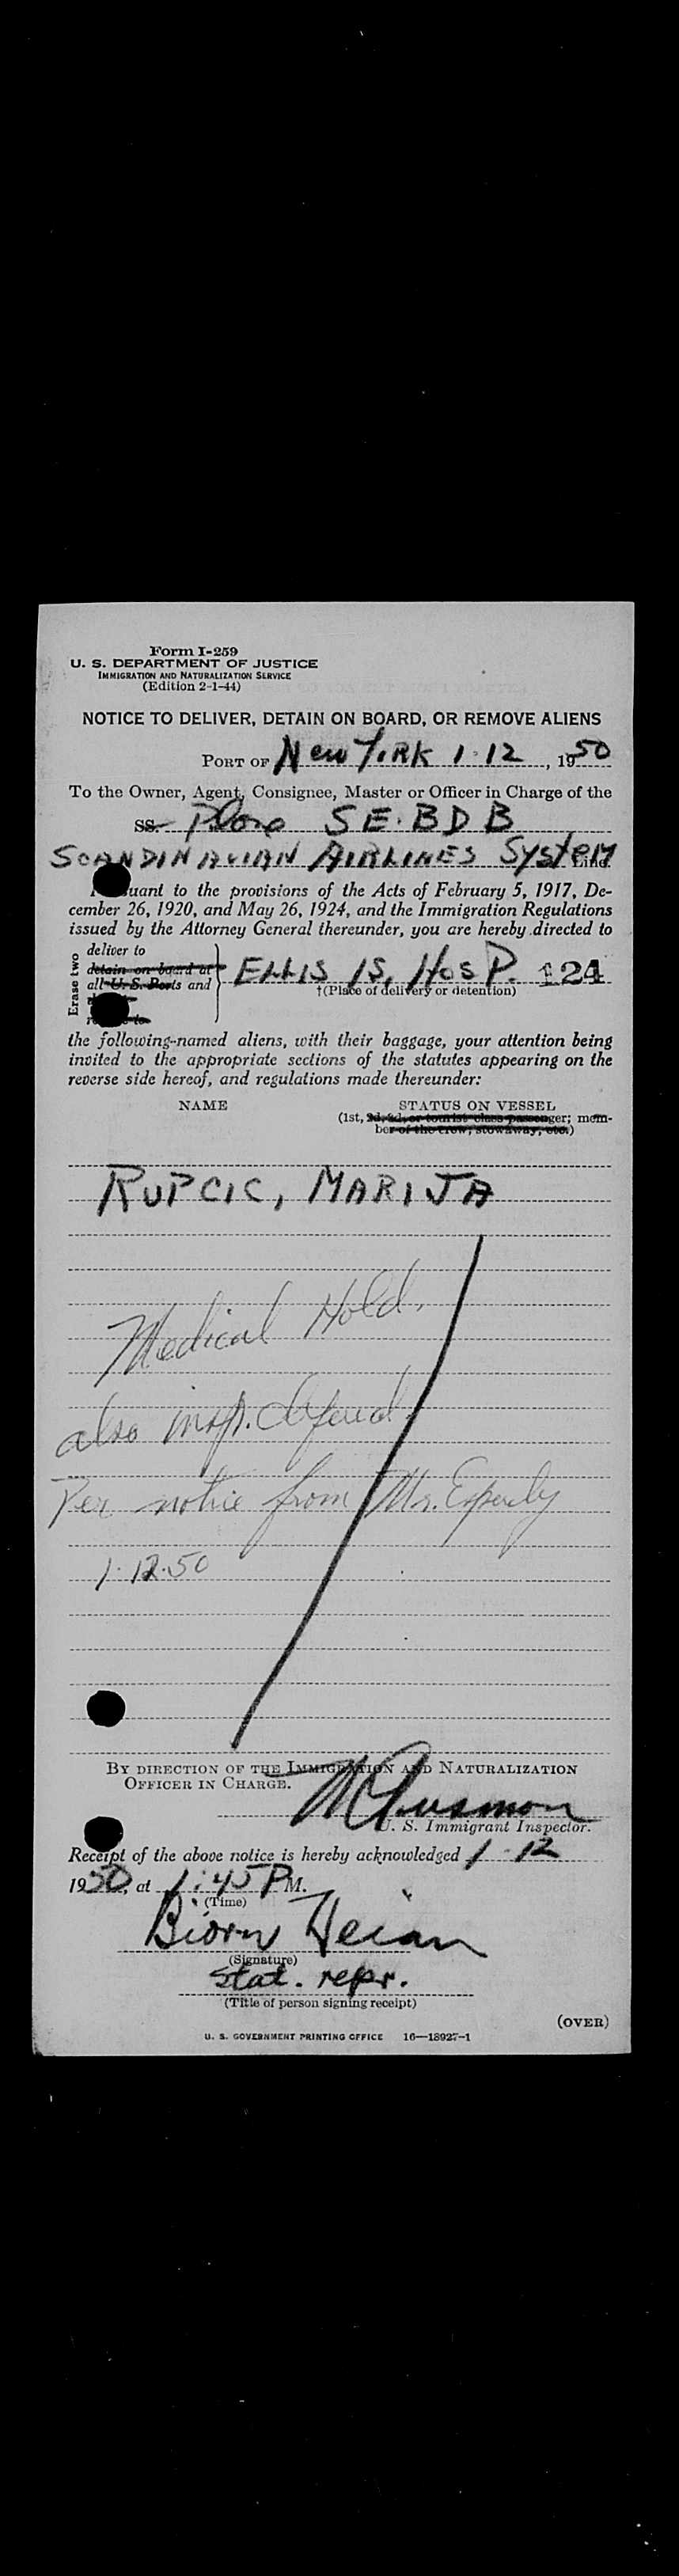 Form I-259
U. S. DEPARTMENT OF JUSTICE
IMMIGRATION AND NATURALIZATION SERVICE
(Edition 2-1-44)
NOTICE TO DELIVER, DETAIN ON BOARD, OR REMOVE ALIENS
PORT OF New York 1-12, 1950
To the Owner, Agent, Consignee, Master or Officer in Charge of the
SS. Plane SE.BDB
SCANDINAVIAN AIRLINES System Line.
uant to the provisions of the Acts of February 5, 1917, De-
cember 26, 1920, and May 26, 1924, and the Immigration Regulations
issued by the Attorney General thereunder, you are hereby directed to
Erase two
deliver to
detain on board at
all U. S. Ports and
ELLIS IS. HOSP. 124
†(Place of delivery or detention)
the following-named aliens, with their baggage, your attention being
invited to the appropriate sections of the statutes appearing on the
reverse side hereof, and regulations made thereunder:
NAME STATUS ON VESSEL
(1st, 2d, 3d, or tourist class passenger; mem-
ber of the crew, stowaway, etc.)
RUPCIC, MARIJA
Medical Hold.
also insp. deferred
Per notice from Mr.
1-12-50
BY DIRECTION OF THE IMMIGRATION AND NATURALIZATION
OFFICER IN CHARGE.
U. S. Immigrant Inspector.
Receipt of the above notice is hereby acknowledged 1-12
1950, at 1:45 PM.
(Time)
Biorn Heian
(Signature)
Stat. repr.
(Title of person signing receipt)
(OVER)
U. S. GOVERNMENT PRINTING OFFICE 16—18927-1